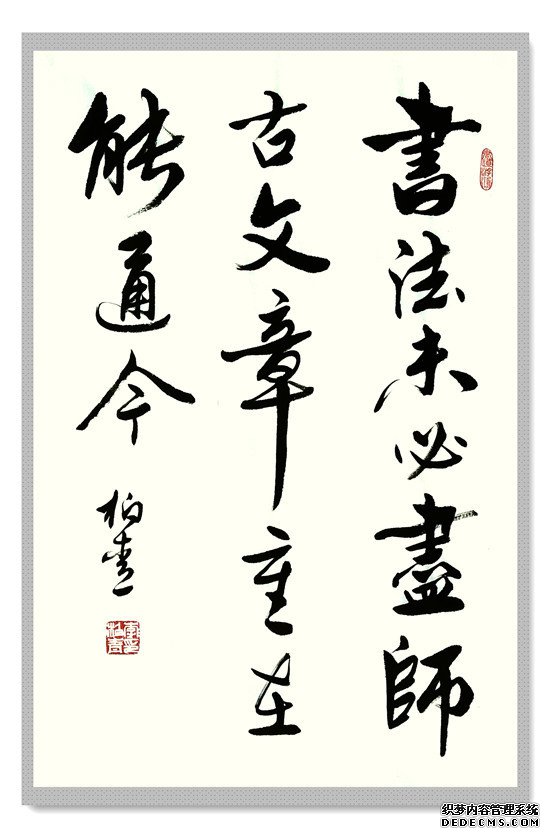 書法未必盡師
古文章重在
能通今
柏
织梦内容管理系统
DEDECMS.COM